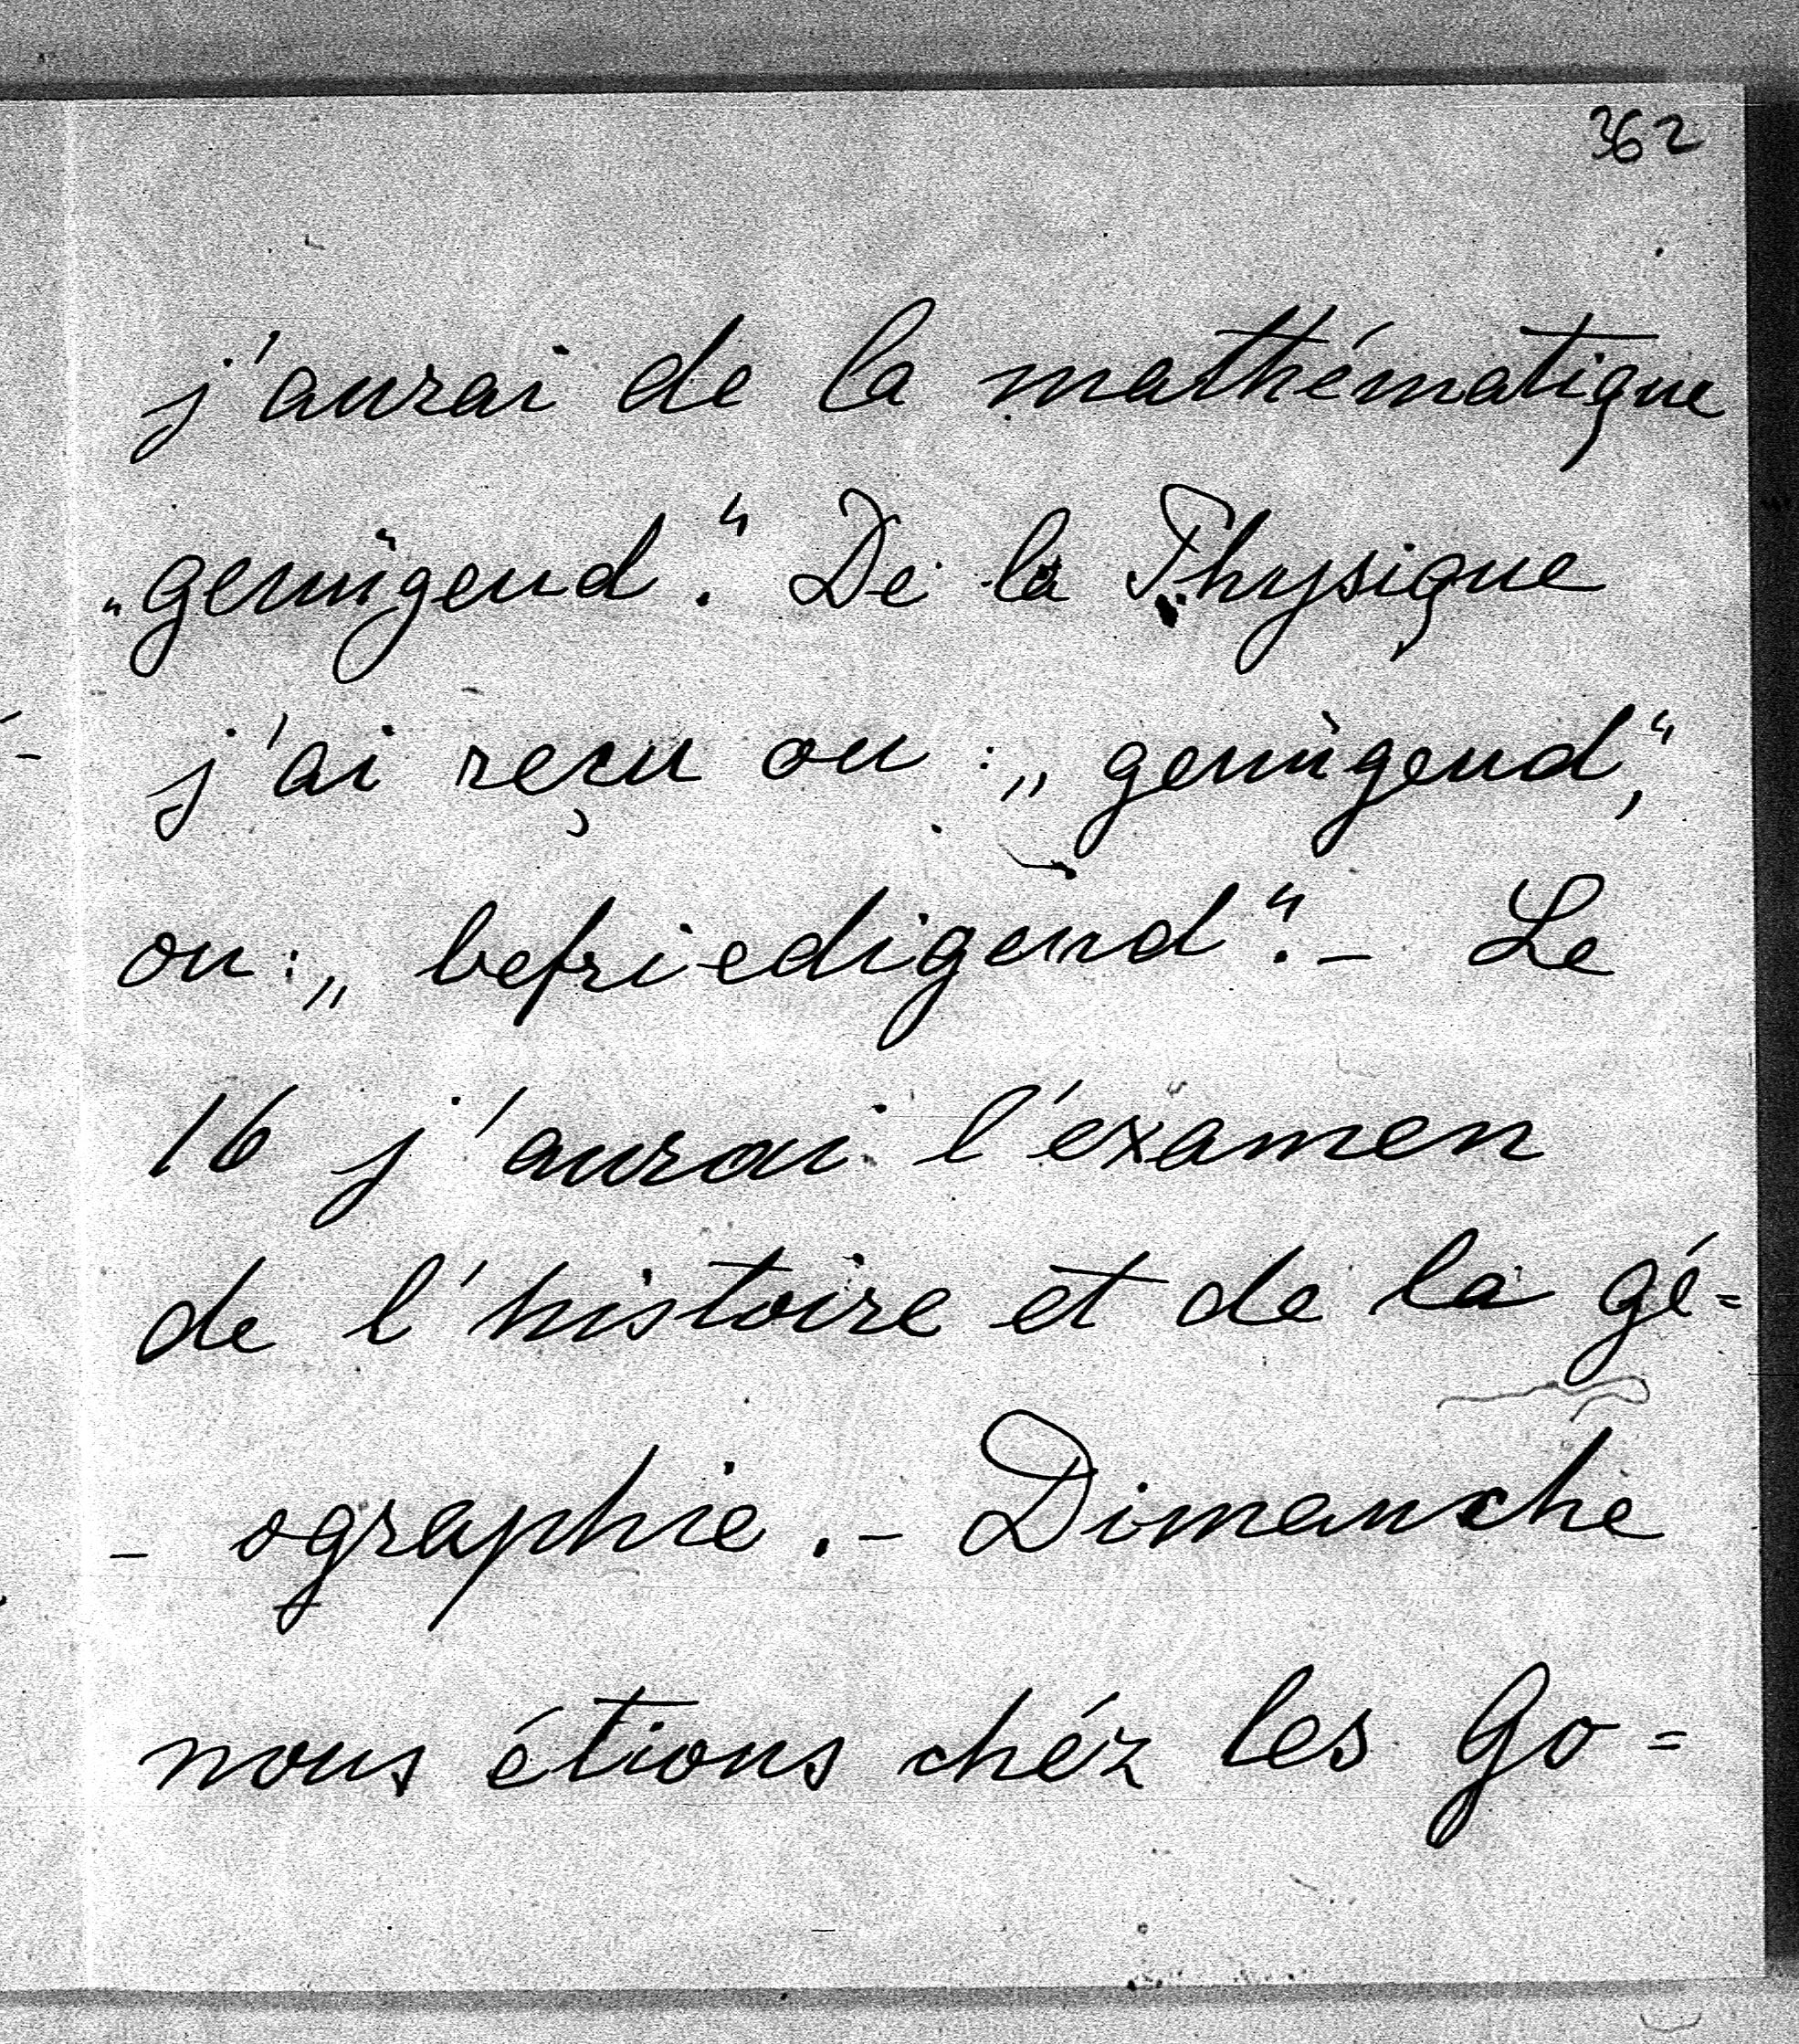 362
j'aurai de la mathématique
„genügend“. De la Physique
j'ai reçu ou : „genügend“,
ou : „befriedigend“. – Le
16 j'aurai l'examen
de l'histoire et de la gé=
- ographie. – Dimanche
nous étions chéz les Go=